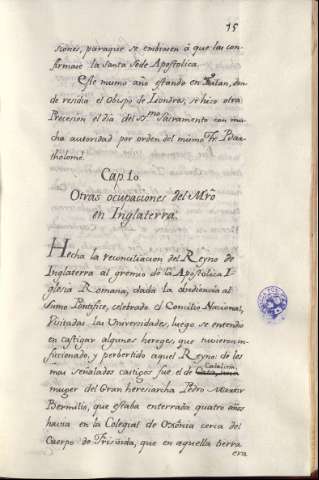 15
siones, paraque se embiasen á que las con-
firmase la Santa Sede Apostolica.
Este mismo año estando en Fulan, don-
de residia el Obispo de Londres, se hizo otra
Procesion el dia del SSmo Sacramento con mu-
cha autoridad por orden del mismo Fr. Bar-
tholome.
Cap. 10.
Otras ocupaciones del Mro
en Inglaterra.
Hecha la reconciliacion del Reyno de
Inglaterra al gremio de la Apostolica I-
glesia Romana, dada la obediencia al
Sumo Pontifice, celebrado el Concilio Nacional,
Visitadas las Universidades, luego se entendio
en castigar algunos hereges, que tuvieron in-
ficionado, y perbertido aquel Reyno: de los
mas señalados castigos fue el de Catalina
muger del Gran heresiarcha Pedro Martir
Bermilio, que estaba enterrada quatro años
havia en la Colegial de Oxônia cerca del
Cuerpo de Frisvida, que en aquella tierra
era